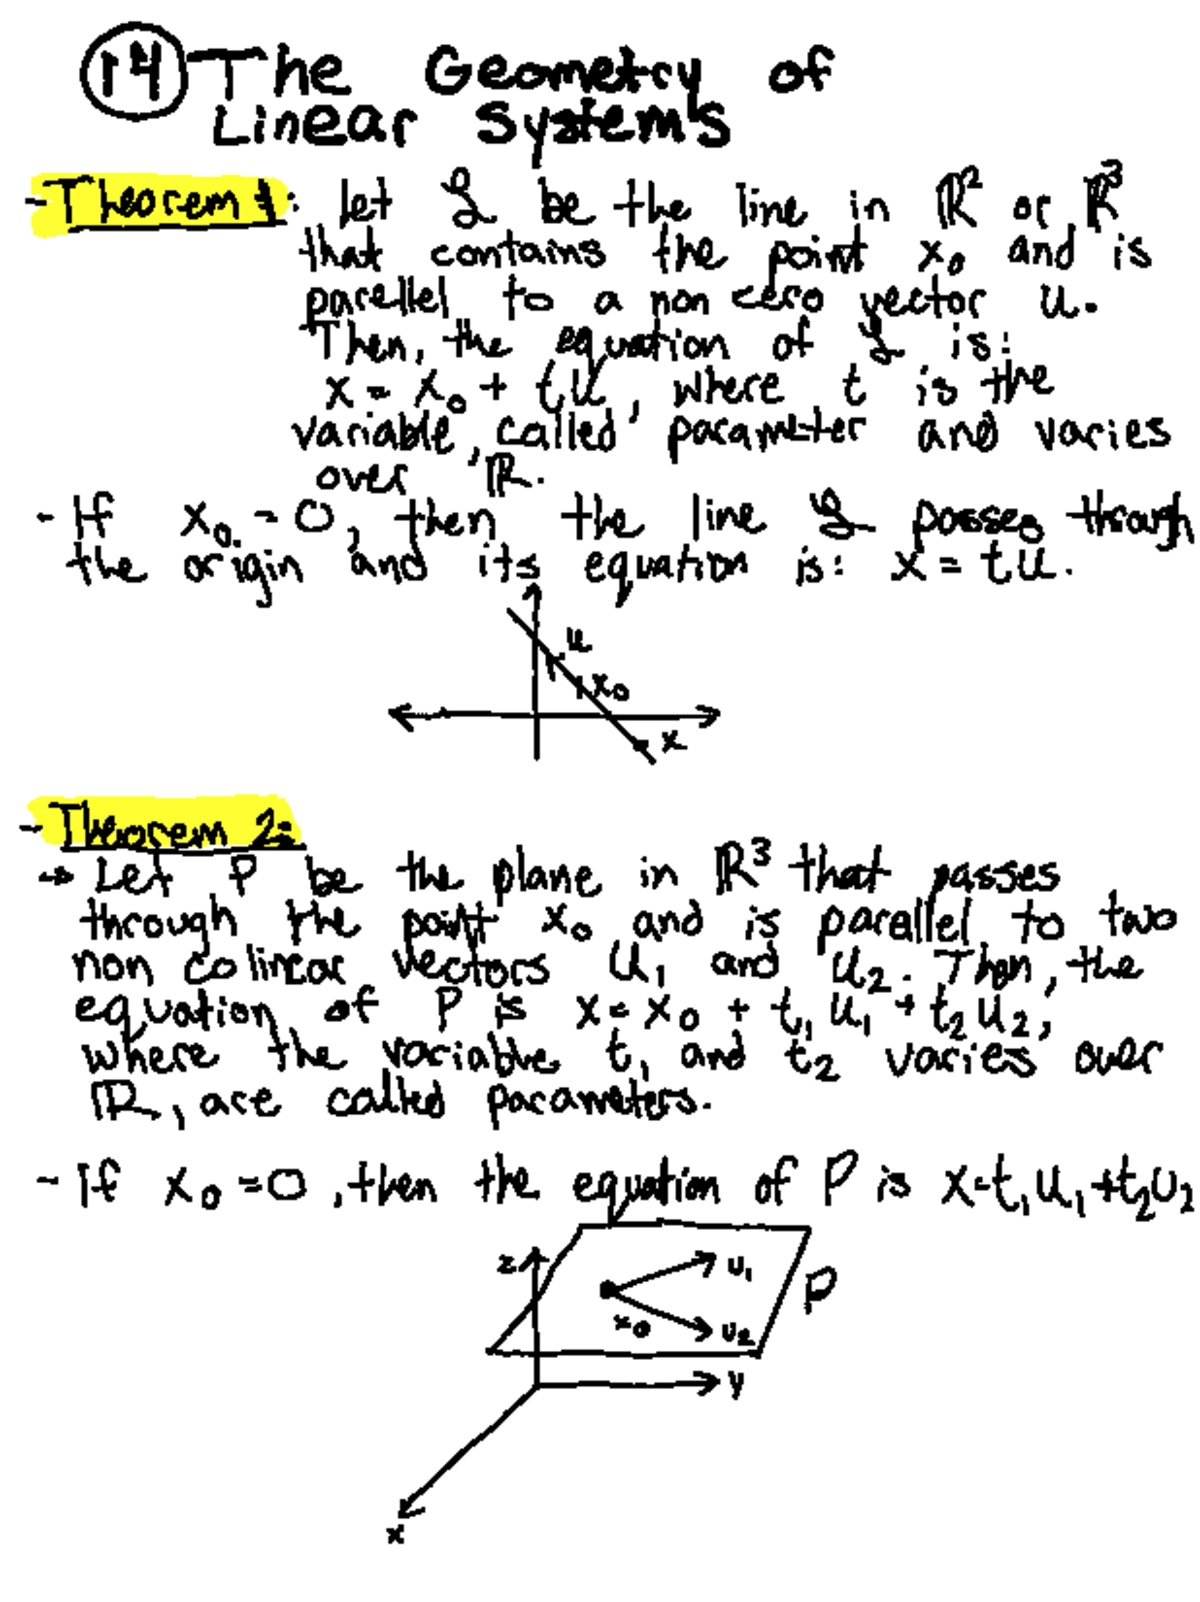 14 The Geometry of
Linear Systems
- Theorem 1: let ℒ be the line in ℝ² or ℝ³
that contains the point x₀ and is
parellel to a non zero vector u.
Then, the equation of ℒ is:
x = x₀ + tu, where t is the
variable, called parameter and varies
over ℝ.
- If x₀ = 0, then the line ℒ passes through
the origin and its equation is: x = tu.
u
x₀
x
- Theorem 2:
→ Let P be the plane in ℝ³ that passes
through the point x₀ and is parallel to two
non colinear vectors u₁ and u₂. Then, the
equation of P is x = x₀ + t₁u₁ + t₂u₂,
where the variable t₁ and t₂ varies over
ℝ, are called parameters.
- If x₀ = 0, then the equation of P is x = t₁u₁ + t₂u₂
z
u₁
P
x₀
u₂
y
x